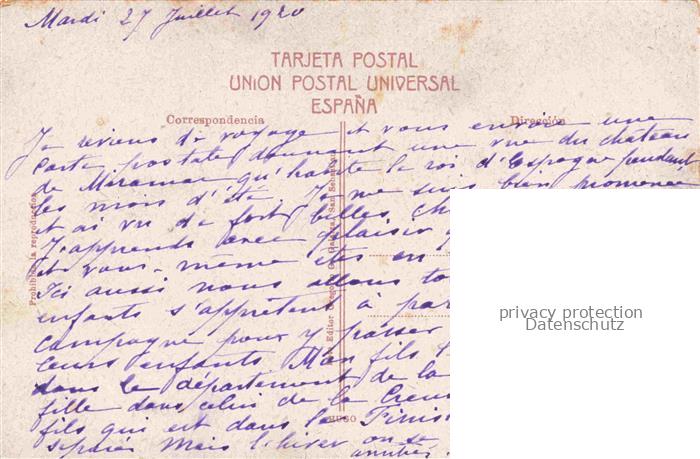 Mardi 27 Juillet 1920
TARJETA POSTAL
UNION POSTAL UNIVERSAL
ESPAÑA
Correspondencia
Dirección
Je reviens de voyage et vous envoie une
carte postale donnant une vue du château
de Miramar qu'habite le roi d'Espagne pendant
les mois d'été. Je me suis bien promenée
et ai vu de fort belles ch
J'apprends avec plaisir
et vous-même êtes en
Ici aussi nous allons to
enfants s'apprêtent à par
campagne pour y passer
leurs enfants. Mon fils
dans le département de la
fille dans celui de la Creus
fils qui est dans le Finis
séparés mais l'hiver on se
Prohibida la reproducción
Editor Gregorio G. Galarza, San Sebastián
privacy protection
Datenschutz